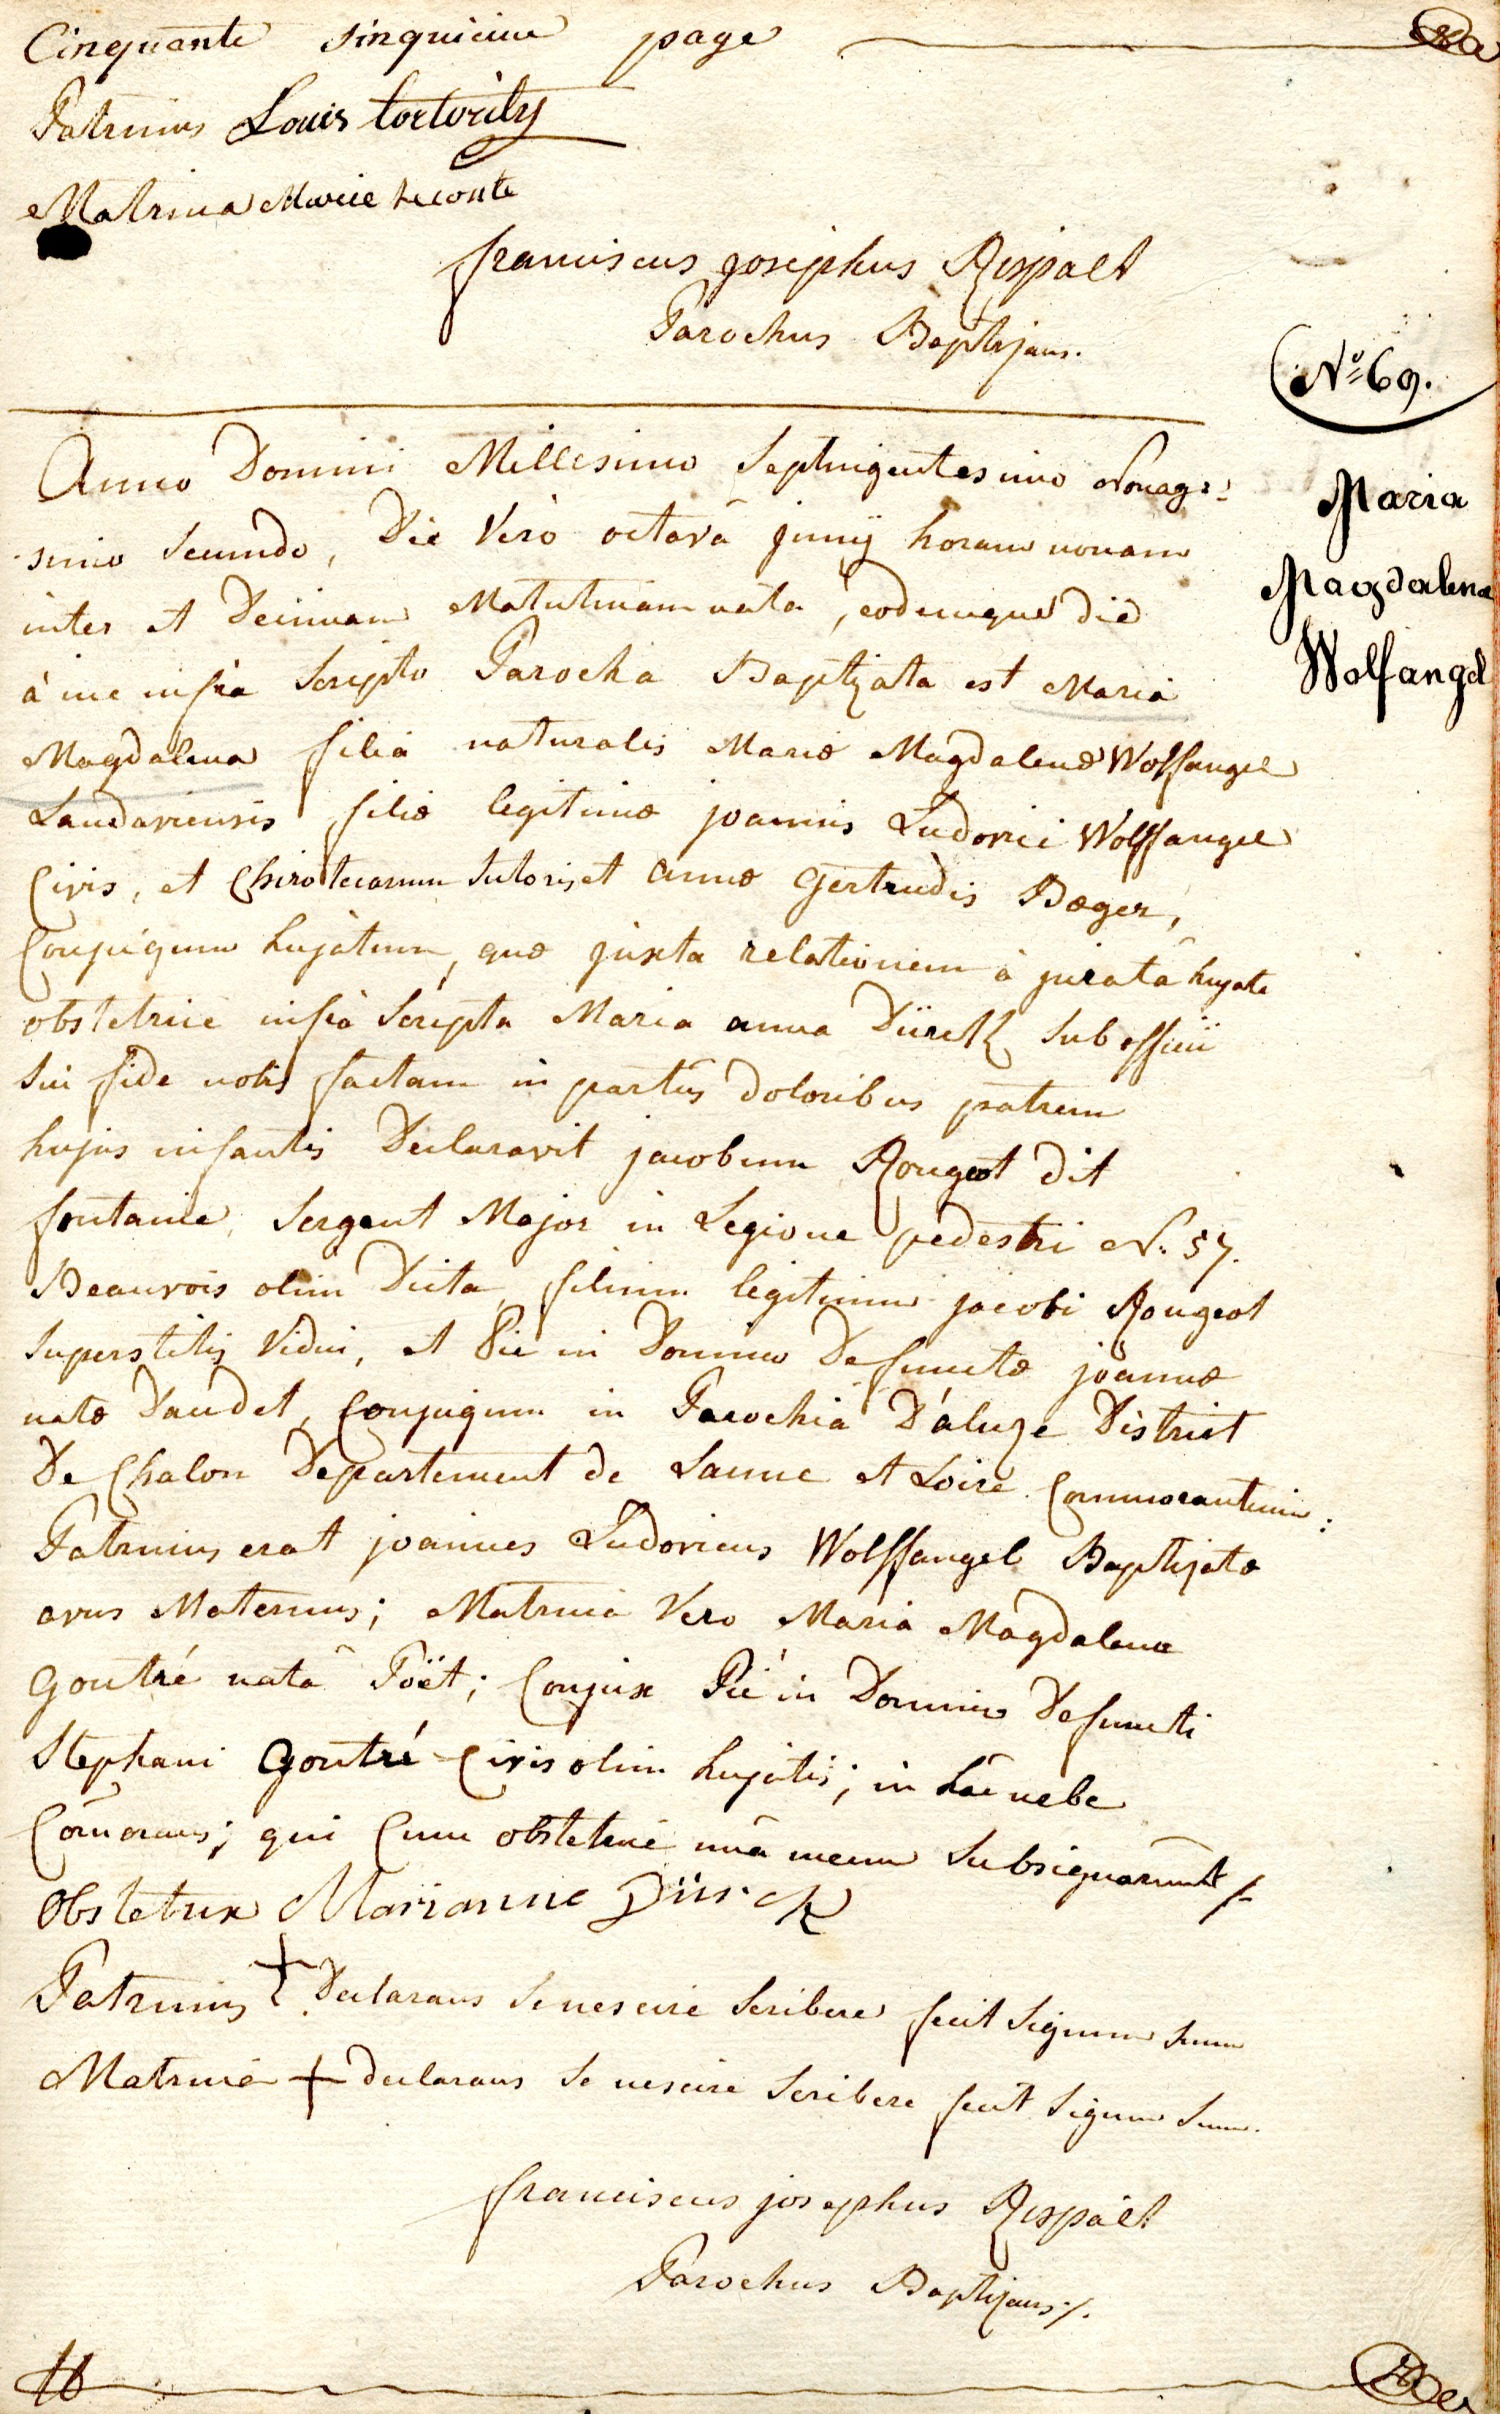 Cinquante sinquieme page
Patrinus Louis tortority
Matrina Marie Leconte
franciscus josephus Rispalt
Parochus Baptizans.
Nº 69.
Maria
Magdalena
Wolfangel
Anno Domini Millesimo Septingentesimo Nonage-
simo secundo, Die Vero octavâ junij horam nonam
inter et Decimam Matutinam nata, eodemque die
à me infra Scripto Parocho Baptizata est Maria
Magdalena filia naturalis Mariæ Magdalenæ Wolffangel
Landaviensis filiæ legitimæ joannis Ludovici Wolffangel
Civis, et Chirotecarum Sutoris, et annæ Gertrudis Bæger,
Conjugum hujatum, quæ juxta relationem à juratâ hujate
obstetrice infrà Scripta Maria anna Dürck sub officii
sui fide nobis factam in partûs doloribus patrem
hujus infantis Declaravit jacobum Rougeot dit
fontaine, Sergent Major in Legione pedestri N. 57.
Beauvois olim Dicta, filium legitimum jacobi Rougeot
superstitis Vidui, et Piè in Domino Defunctæ joannæ
natæ Daudet, Conjugum in Parochia D'aluze District
De Chalon Departement de Saune et Loire Commorantium:
Patrinus erat joannes Ludovicus Wolffangel Baptizatæ
avus Maternus; Matrina Vero Maria Magdalena
Goutré nata Poët; Conjux Piè in Domino Defuncti
Stephani Goutré Civis olim hujatis; in hâc urbe
Com̄orans; qui Cum obstetrice unâ mecum Subsignarunt
Obstetrix Marianne Dürck
Patrinus + Declarans se nescire scribere fecit signum suum
Matrina + declarans se nescire scribere fecit signum suum.
franciscus josephus Rispalt
Parochus Baptizans./.